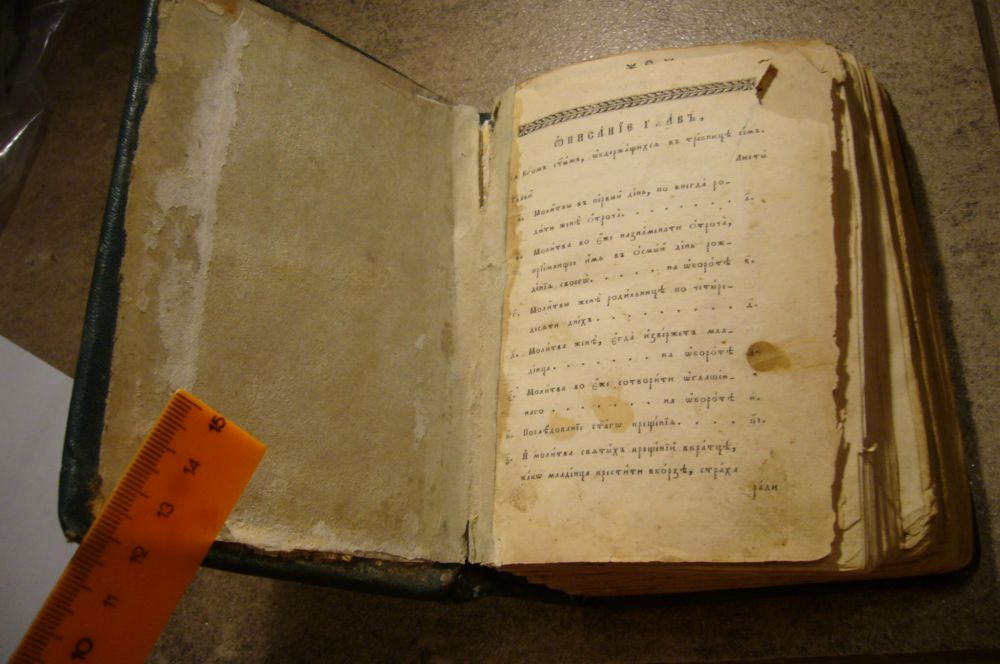 Ѡ҆писа́нїе г а́въ,
Бг҃омъ ст҃ы́мъ, ѡ҆держа́щихсѧ въ тре́бницѣ се́мъ.
Листы̀
Главы̀
Моли́твы въ пе́рвый де́нь, по внегда̀ ро-
ди́ти женѣ̀ ѻ҆троча̀. . . . . . . . а҃.
Моли́тва во є҆́же назнаменати ѻ҆троча̀,
прїе́млющее и҆́мѧ въ ѻ҆смы́й де́нь рож-
де́нїѧ своегѡ̀. . . . . на ѡ҆боро́тѣ в҃.
г҃. Моли́твы женѣ̀ роди́льницѣ по четы́ре-
десѧти дне́хъ. . . . . . . . . д҃.
д҃. Моли́тва женѣ̀, є҆гда̀ и҆зве́ржетъ мла-
де́нца. . . . . . на ѡ҆боро́тѣ
є҃. Моли́тва во є҆́же сотвори́ти ѡ҆глаше́н-
наго . . . . . . . на ѡ҆боро́тѣ и҃.
Послѣ́дованїе ст҃а́гѡ креще́нїѧ. . . .
И҆ моли́тва святы́хъ креще́нїй вкра́тцѣ,
ка́кѡ младе́нца крести́ти вко́рзѣ, стра́ха
ра́ди
10 11 12 13 14 15